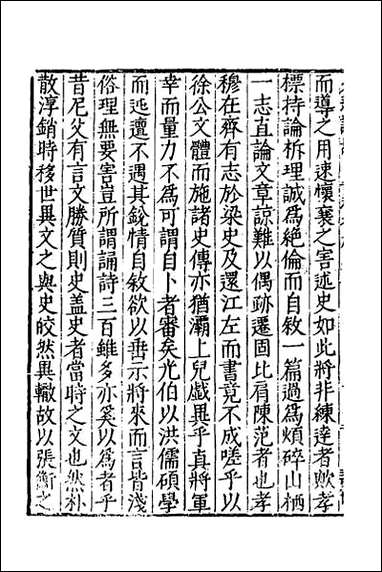 而導之用速懷襄之害述史如此將非練達者歟孝
標持論析理誠爲絕倫而自敘一篇過爲煩碎山栖
一志直論文章諒難以偶跡遷固比肩陳范者也孝
穆在齊有志於梁史及還江左而書竟不成嗟乎以
徐公文體而施諸史傳亦猶灞上兒戲異乎真將軍
幸而量力不爲可謂自卜者審矣光伯以洪儒碩學
而迍邅不遇其銳情自敘欲以垂示將來而言皆淺
俗理無要害豈所謂誦詩三百雖多亦奚以爲者乎
昔尼父有言文勝質則史盖史者當時之文也然朴
散淳銷時移世異文之與史皎然異轍故以張衡之